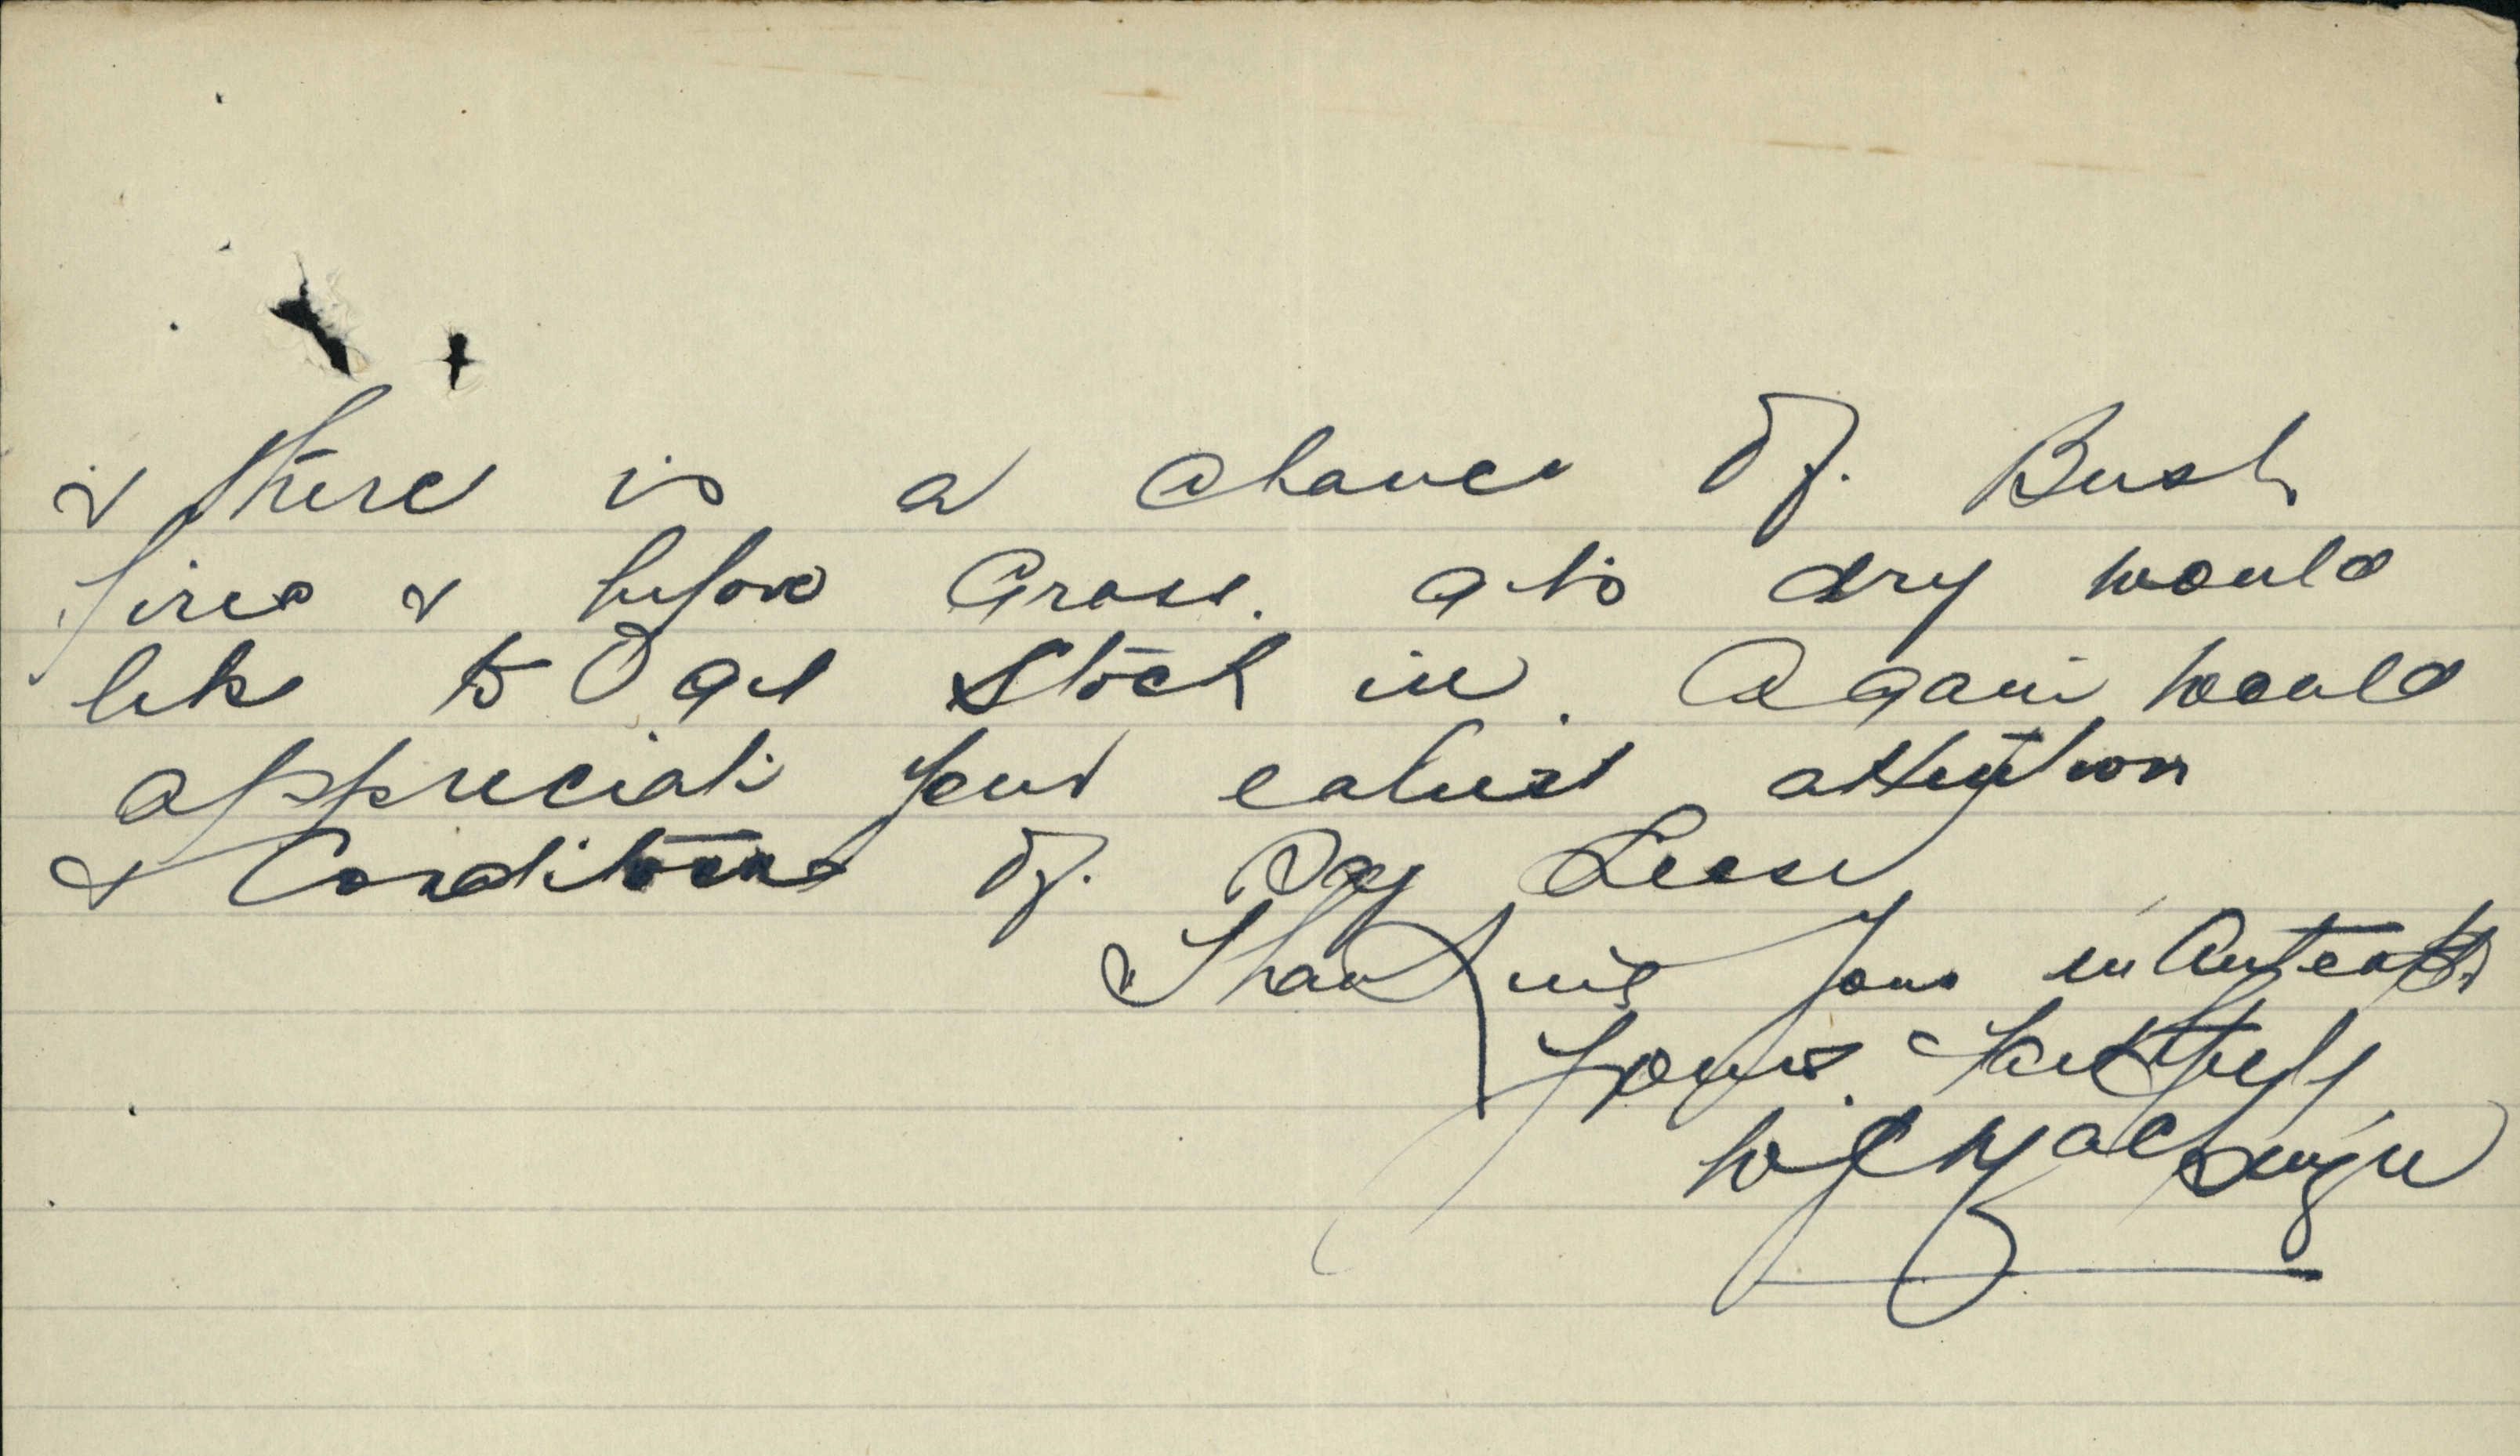 & there is a chance of. Bush
fires & before Grass. gets dry would
like to get Stock in. Again would
appreciate your earliest attention
& Conditions of. Leese
Thanking you in
Yours Faithfully